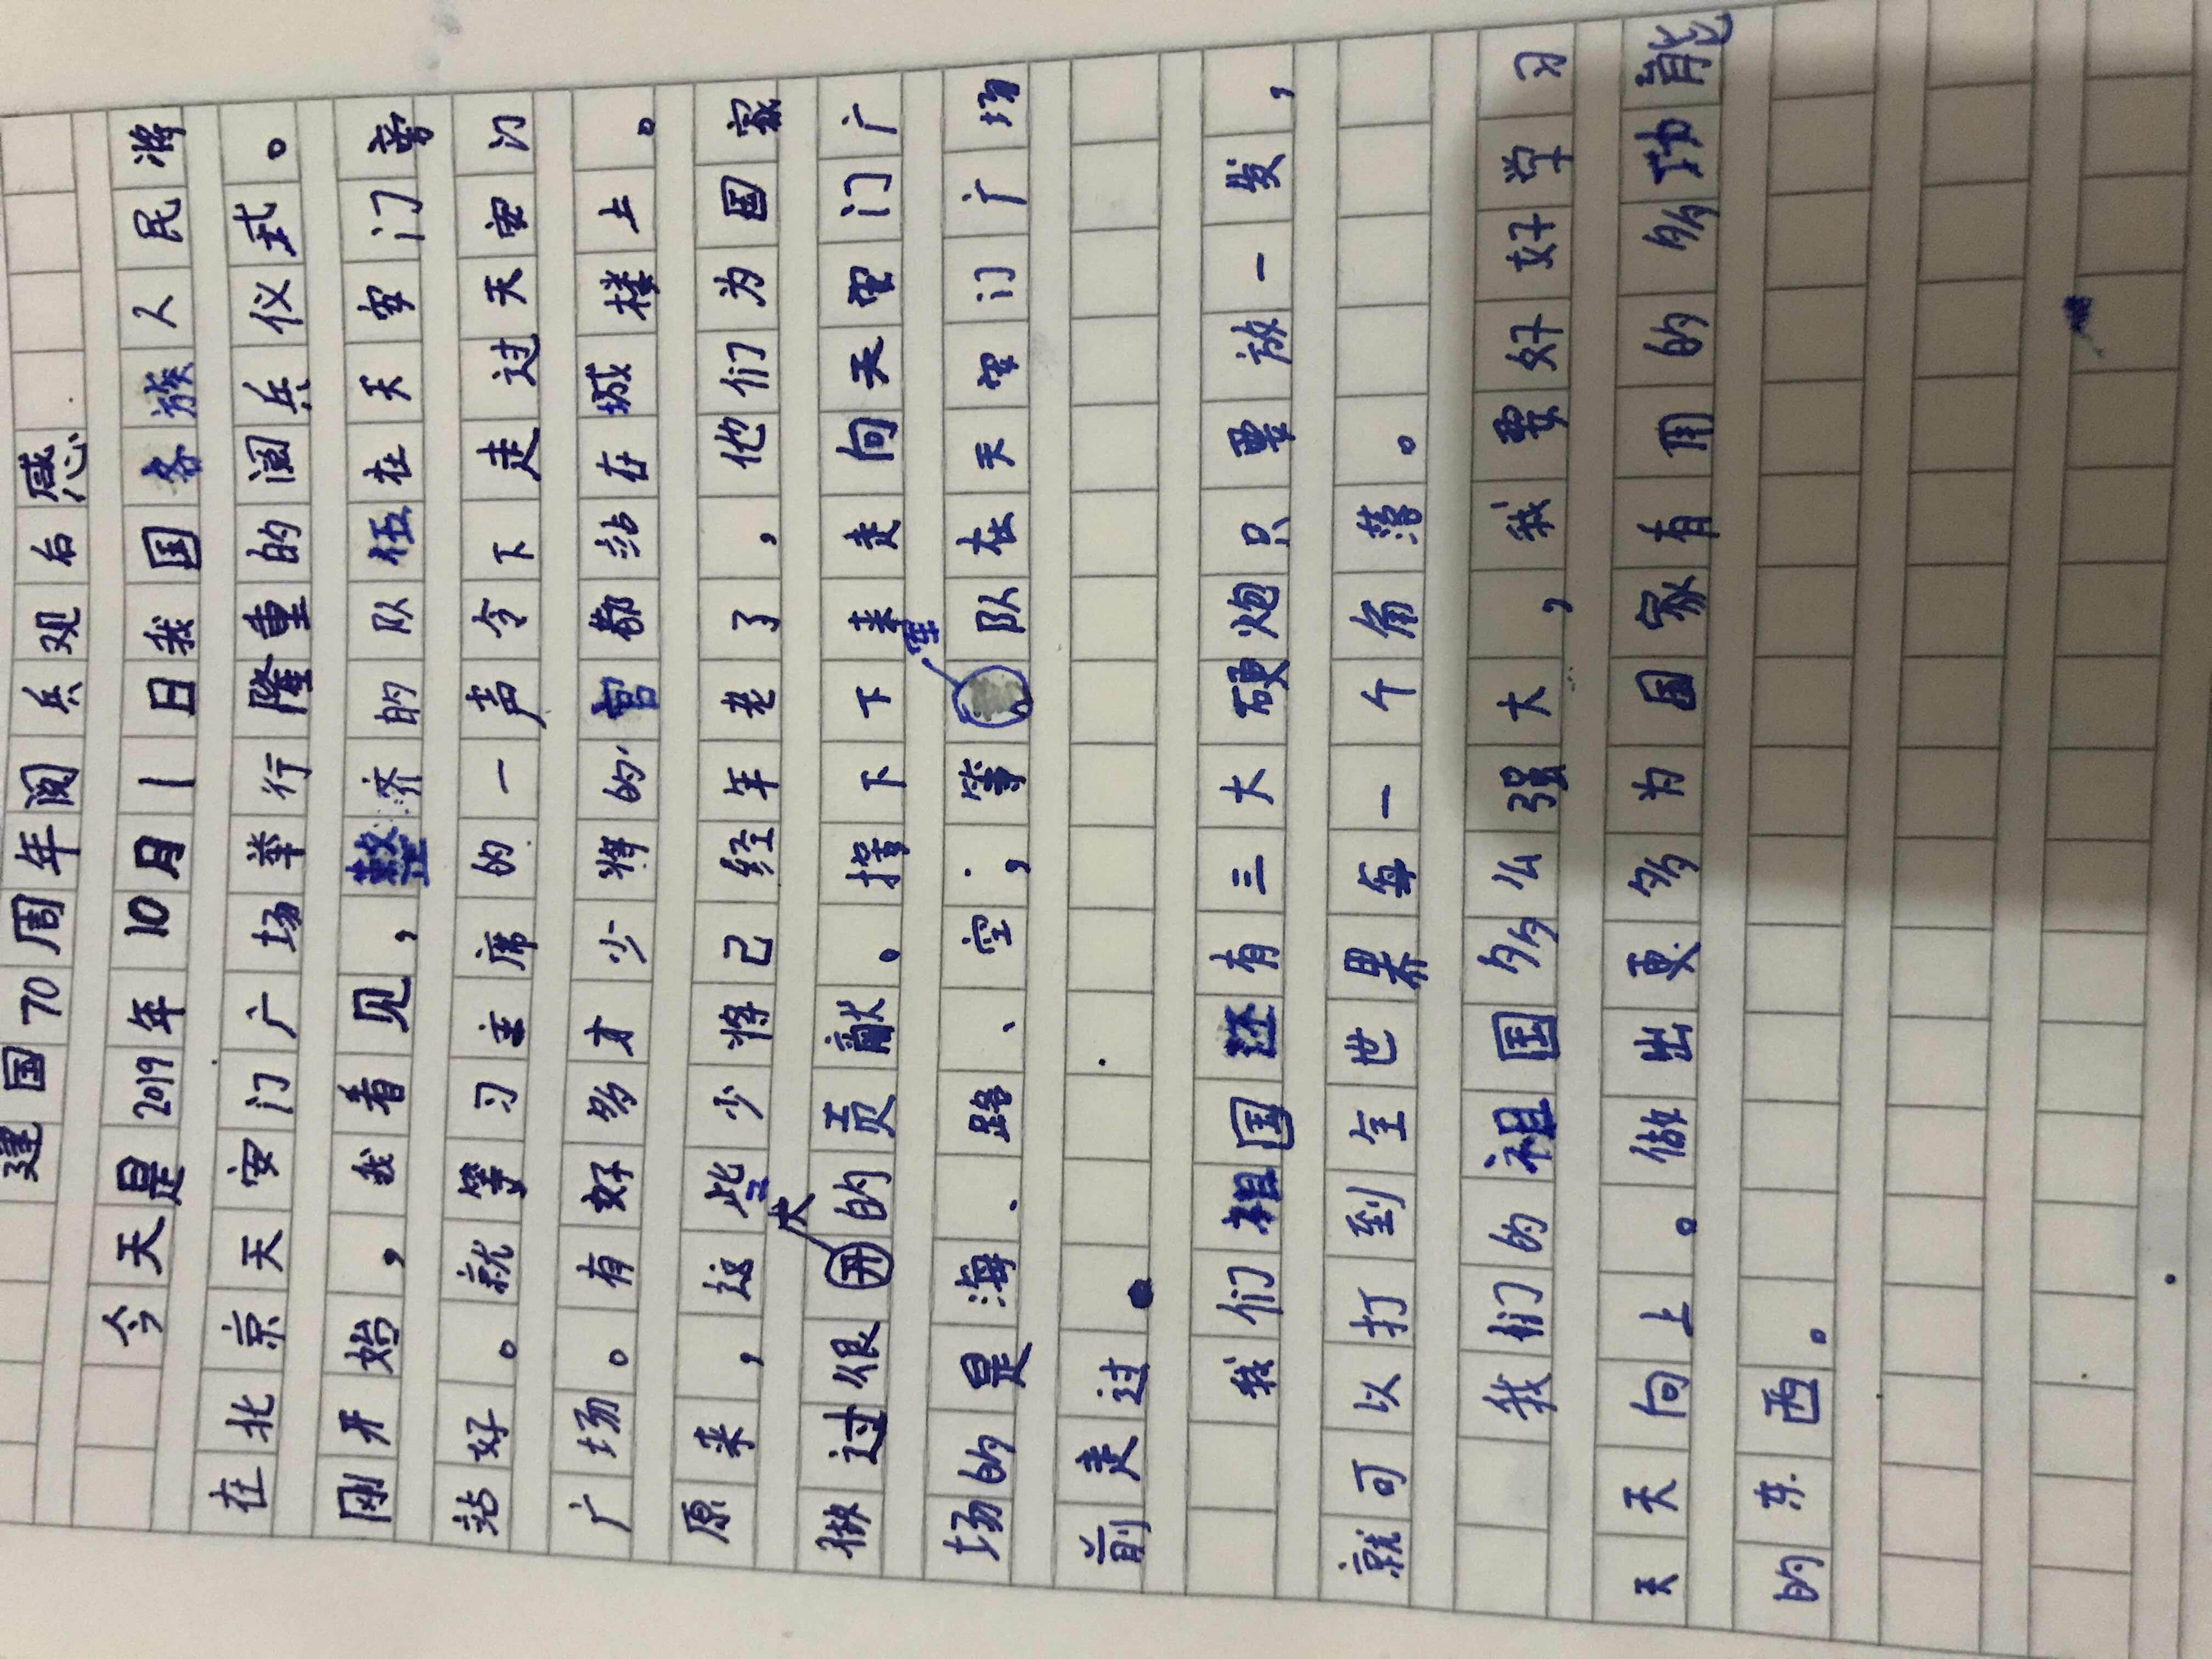 建国70周年阅兵观后感
今天是2019年10月1日我国各族人民将
在北京天安门广场举行隆重的阅兵仪式。
刚开始，我看见，整济的队伍在天安门旁
站好。就等习主席的一声令下走过天安门
广场。有好多才少将的，宫都站在城楼上。
原来，这些少将己经年老了，他们为国家
做过很大的贡献。接下下来走向天安门广
场的是海、路、空，等军队在天安门广场
前走过。
我们祖国还有三大硬炮只要放一发，
就可以打到全世界每一个角落。
我们的祖国多么强大，我要好好学习
天天向上。做出更多为国家有用的多功能
的东西。